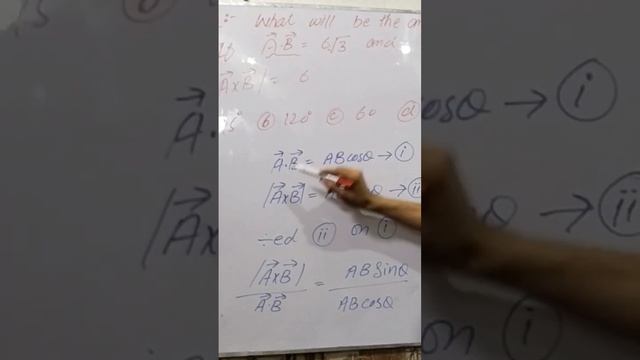 :- What will be the an
If A⃗.B⃗ = 6√3 and
|A⃗xB⃗| = 6
15° ⓑ 120° ⓒ 60 ⓓ
A⃗.B⃗ = ABcosθ → ⓘ
|A⃗xB⃗| = θ → ⓘⓘ
÷ed ⓘⓘ on ⓘ
|A⃗xB⃗| / A⃗.B⃗ = ABSinθ / ABcosθ